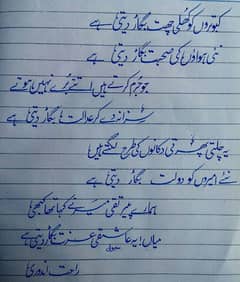 کبوتروں کو کھلی چھت بگاڑ دیتی ہے
نئی ہواؤں کی صحبت بگاڑ دیتی ہے
جو جرم کرتے ہیں اتنے بُرے نہیں ہوتے
سزا نہ دے کر عدالت بگاڑ دیتی ہے
یہ چلتی پھرتی دکانوں کی طرح لگتے ہیں
نئے امیروں کو دولت بگاڑ دیتی ہے
ہمارے میر تقی میر نے کہا تھا کبھی
میاں! یہ عاشقی عزت بگاڑ دیتی ہے
راحت اندوری